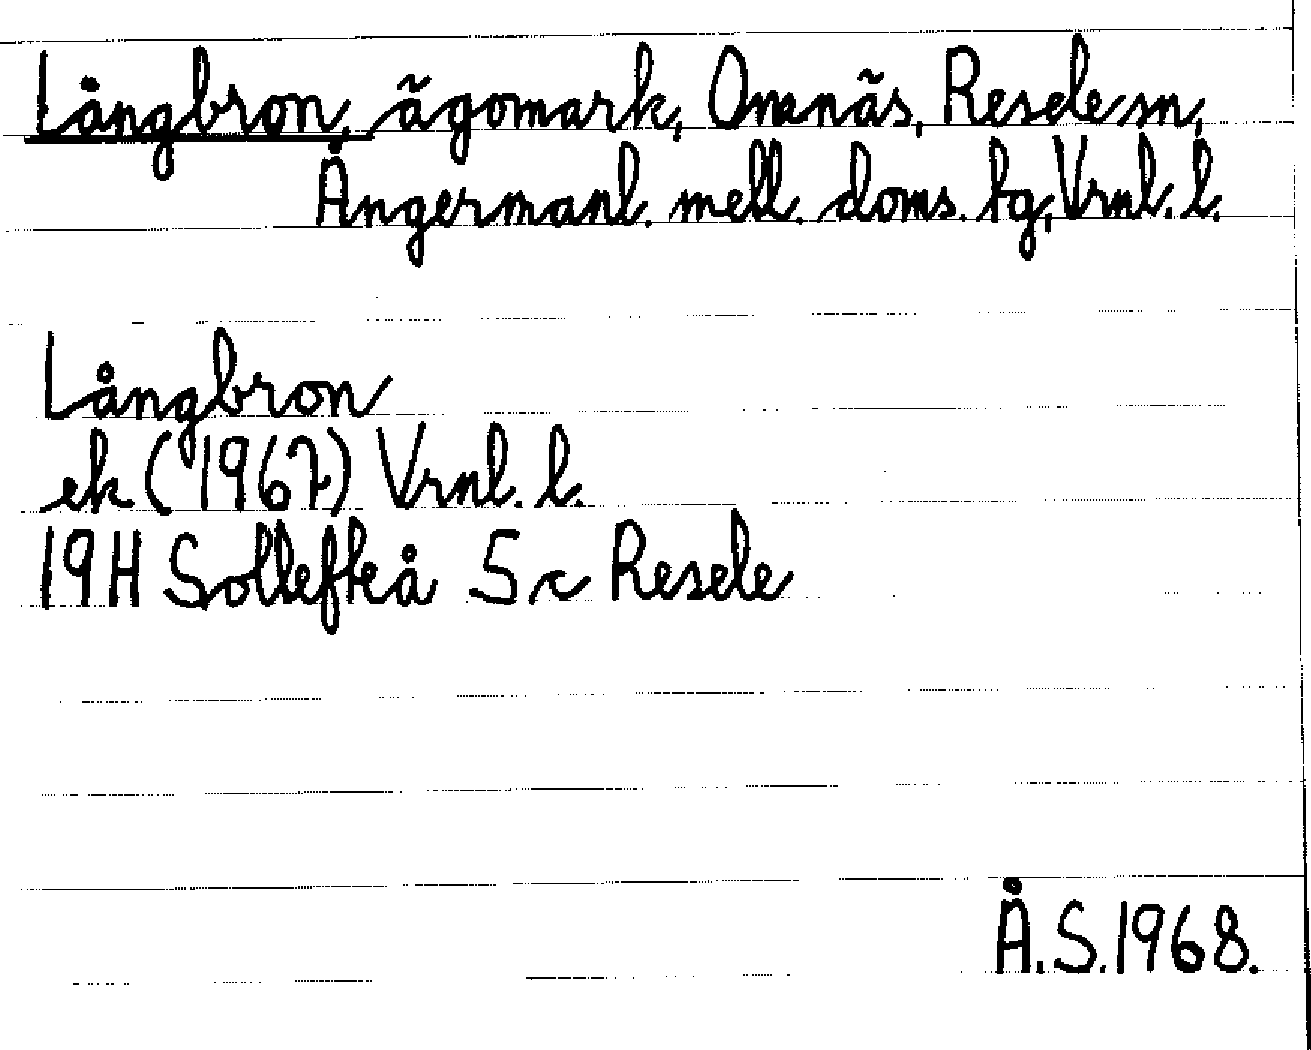 Långbron, ägomark, Omnäs, Resele sn,
Ångermanl. mell. doms. tg, Vrnl. l.
Långbron
ek (1967) Vrnl. l.
19H Sollefteå 5 c Resele
Å.S. 1968.